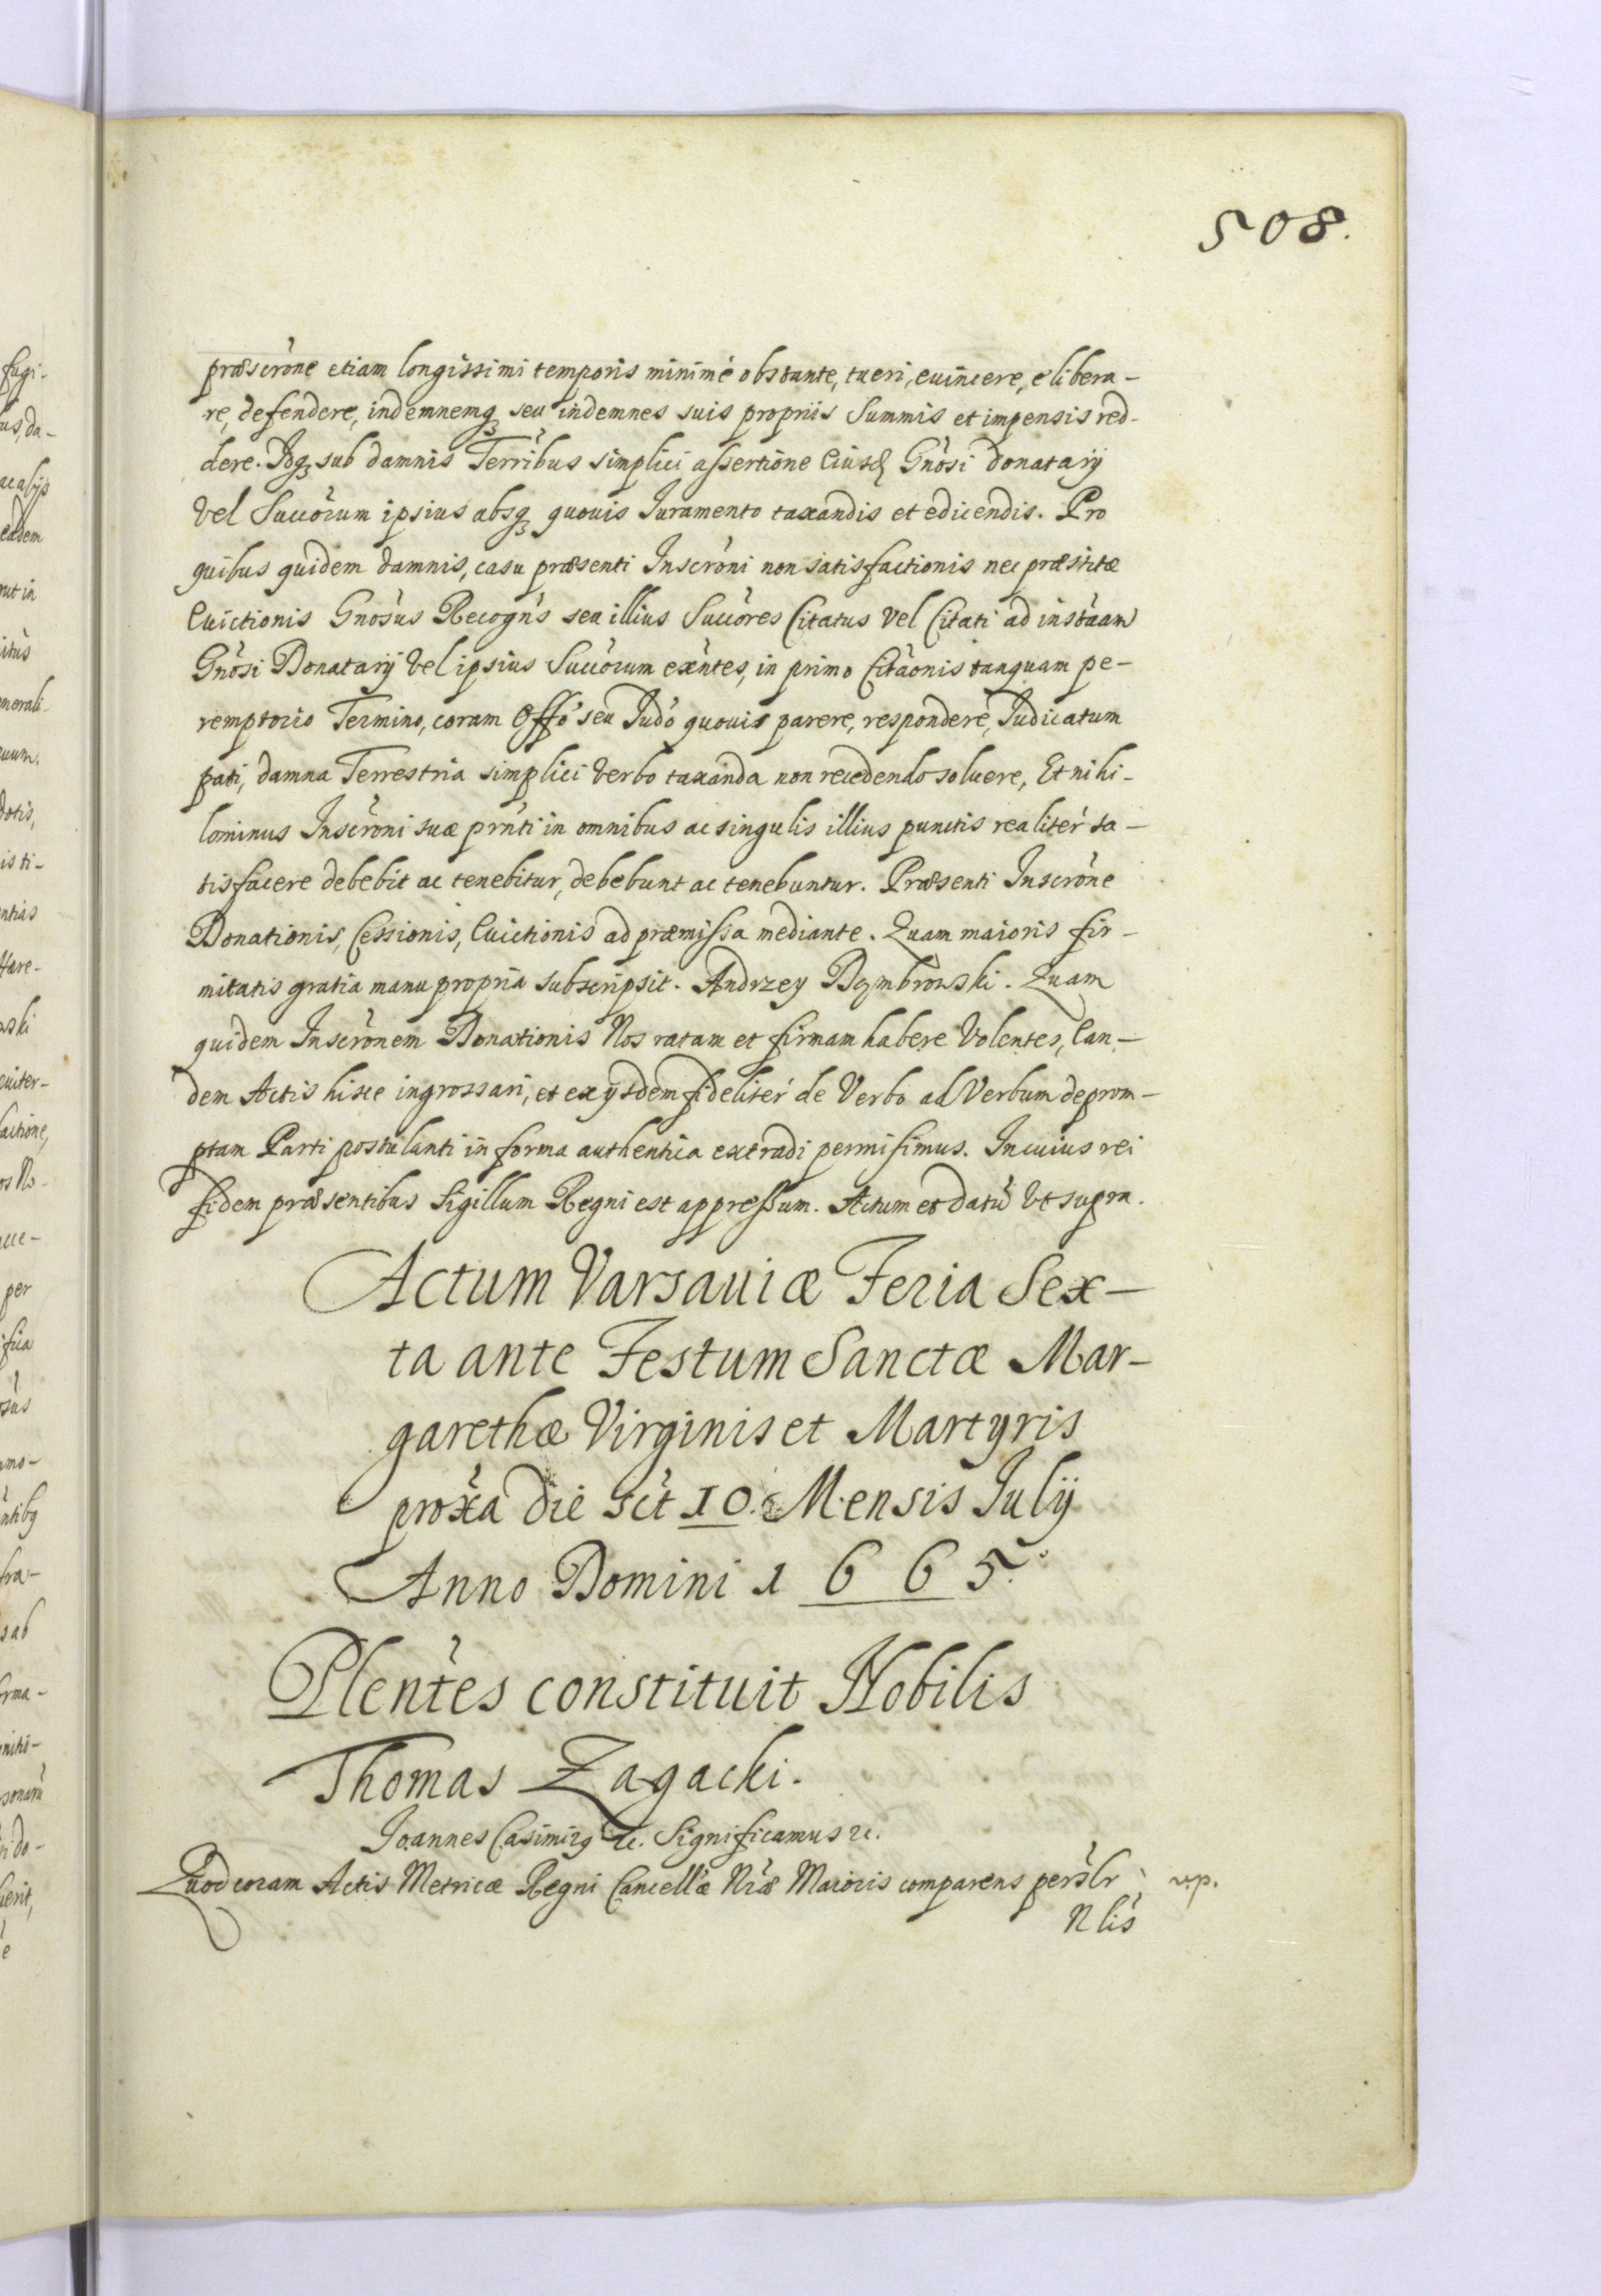 508.
præscrone etiam longissimi temporis minimé obstante, tueri, euincere, elibera-
re, defendere, indemnemq₃ seu indemnes suis proprijs Summis et impensis red-
dere. Idq₃ sub damnis Terribus simplici assertione Eiusd Gnosi donatarij
Vel Succorum ipsius absq₃ quouis Iuramento taxandis et edicendis. Pro
quibus quidem damnis, casu præsenti Inscroni non satisfactionis nec præstitæ
Euictionis Gnosus Recogns seu illius Succores Citatus Vel Citati ad instaam
Gnosi Donatarij Vel ipsius Succorum exntes, in primo Citaonis tanquam pe-
remptorio Termino, coram Offo seu Iudo quouis parere, respondere, Iudicatum
pati, damna Terrestria simplici Verbo taxanda non recedendo soluere, Et nihi-
lominus Inscroni suæ prnti in omnibus ac singulis illius punctis realiter sa-
tisfacere debebit ac tenebitur, debebunt ac tenebuntur. Præsenti Inscrone
Donationis, Cessionis, Euictionis ad præmissa mediante. Quam maioris fir-
mitatis gratia manu propria subscripsit. Andrzey Dąmbrowski. Quam
quidem Inscronem Donationis Nos ratam et firmam habere Volentes, Ean-
dem Actis hisce ingrossari, et ex ijsdem fideliter de Verbo ad Verbum deprom-
ptam Parti postulanti in forma authentica extradi permisimus. In cuius rei
fidem præsentibus Sigillum Regni est appressum. Actum et datũ Vt supra.
Actum Varsauiæ Feria Sex-
ta ante Festum Sanctæ Mar-
garethæ Virginis et Martyris
proxa die sct 10. Mensis Iulij
Anno Domini 1665.
Plentes constituit Nobilis
Thomas Zagacki.
Joannes Casimirꝯ &c. Significamus &c.
Quod coram Actis Metricæ Regni Cancellæ Nræ Maioris comparens perslr
v.p.
Nlis